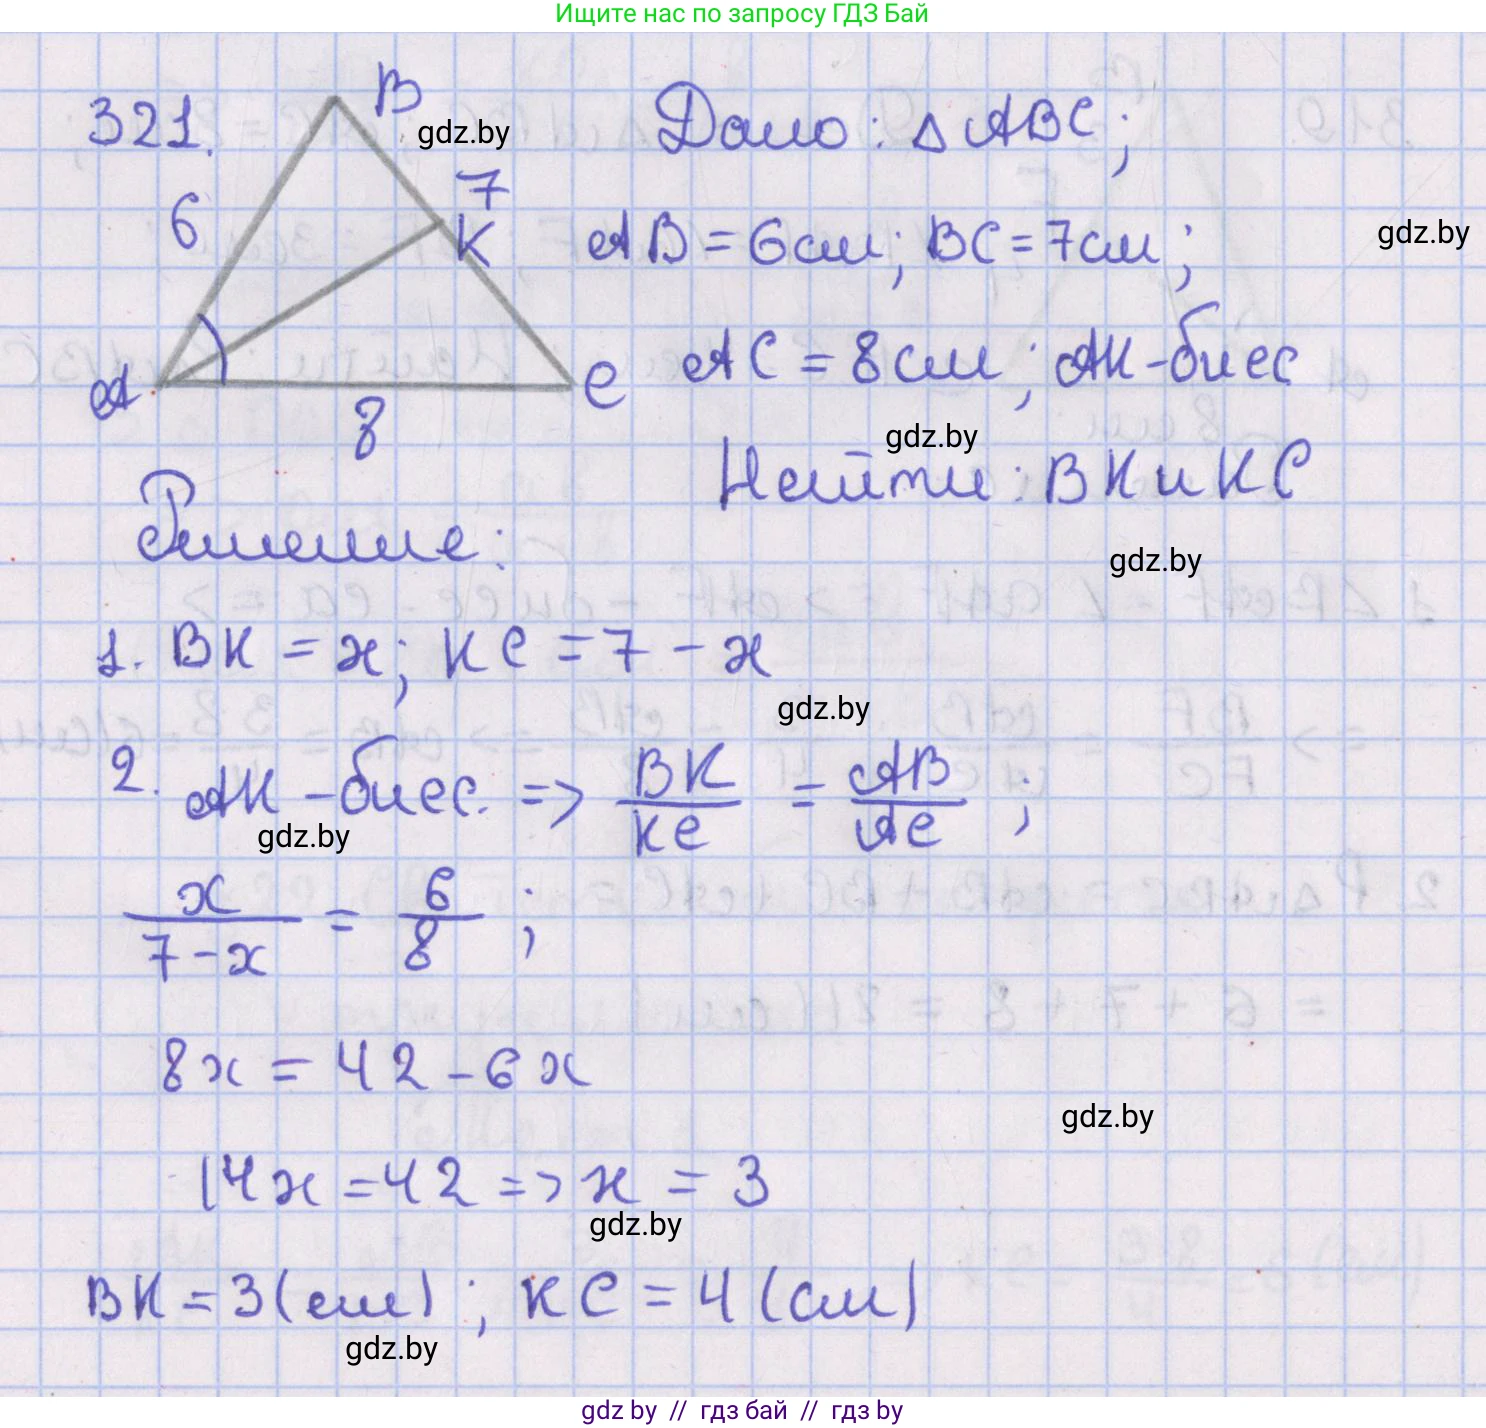 Ищите нас по запросу ГДЗ Бай
321.
B
gdz.by
6
7
K
A
8
C
Дано: △ ABC;
gdz.by
AB = 6 см; BC = 7 см;
AC = 8 см; AK - бисс
gdz.by
Найти: BK и KC
Решение:
gdz.by
1. BK = x; KC = 7 - x
gdz.by
2. AK - бисс. => BK/KC = AB/AC;
gdz.by
x/(7-x) = 6/8;
8x = 42 - 6x
gdz.by
14x = 42 => x = 3
gdz.by
BK = 3 (см); KC = 4 (см)
gdz.by
gdz by // гдз бай // гдз by